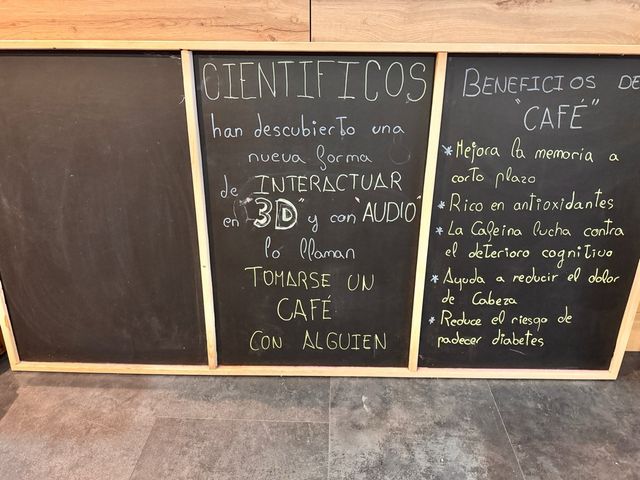 CIENTIFICOS
han descubierto una
nueva forma
de INTERACTUAR
en "3D" y con "AUDIO"
lo llaman
TOMARSE UN
CAFÉ
CON ALGUIEN
BENEFICIOS DE
"CAFÉ"
* Mejora la memoria a
corto plazo
* Rico en antioxidantes
* La Cafeina lucha contra
el deterioro cognitivo
* Ayuda a reducir el dolor
de Cabeza
* Reduce el riesgo de
padecer diabetes